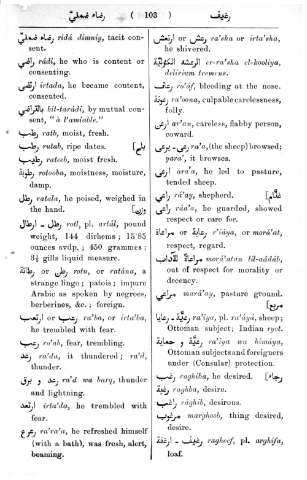 رضاء ضمنيّ ( 103 ) رغيف
رضاء ضمنيّ ridá dimniy, tacit con-
sent.
راضي rádi, he who is content or
consenting.
ارتضى irtada, he became content,
consented.
بالتراضي bil-tarádi, by mutual con-
sent, "à l'amiable."
رطب ratb, moist, fresh.
رطب rutab, ripe dates.
رطيب rateeb, moist fresh.
رطوبة rotooba, moistness, moisture,
damp.
رطل ratala, he poised, weighed in
the hand.
رطل - ارطال rotl, pl. artál, pound
weight, 144 dirhems; 15·85
ounces avdp.; 450 grammes;
3½ gills liquid measure.
رطن or رطانة rotn, or ratána, a
strange lingo; patois; impure
Arabic as spoken by negroes,
berberines, &c.; foreign.
رعب or ارتعب ra'ba, or irta'ba,
he trembled with fear.
رعب ra'ab, fear, trembling.
رعد ra'da, it thundered; ra'd,
thunder.
رعد و برق ra'd wa barq, thunder
and lightning.
ارتعد irta'da, he trembled with
fear.
رعرع ra'ra'a, he refreshed himself
(with a bath), was fresh, alert,
beaming.
رعش or ارتعش ra'sha or irta'sha,
he shivered.
الرعشة الكئولية er-ra'sha el-kouliya,
delirium tremens.
رعاف ro'áf, bleeding at the nose.
رعونة ra'oona, culpable carelessness,
folly.
ar'an, careless, flabby person,
coward.
رعى - يرعى ra'a, (the sheep) browsed;
yara', it browses.
ارعى ara'a, he led to pasture,
tended sheep.
راعي rá'ay, shepherd.
راعى ráa'a, he guarded, showed
respect or care for.
رعاية or مراعاة ri'áya, or morá'at,
respect, regard.
مراعاة للآداب moráa'atan lil-adááb,
out of respect for morality or
decency.
مراعي mará'ay, pasture ground.
رعيّة - رعايا ra'iya, pl. ra'áyá, sheep;
Ottoman subject; Indian ryot.
رعيّة و حماية ra'iya wa himáya,
Ottoman subjects and foreigners
under (Consular) protection.
رغب raghiba, he desired.
رغبة raghba, desire.
راغب rághib, desirous.
مرغوب marghoob, thing desired,
desire.
رغيف - ارغفة ragheef, pl. arghifa,
loaf.